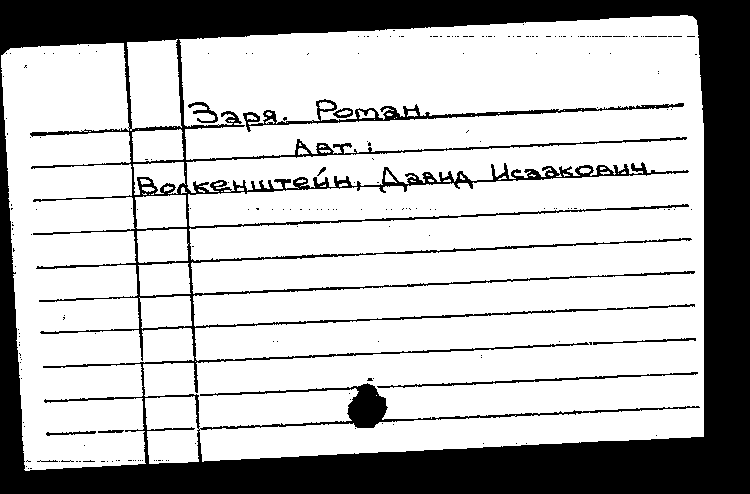 Заря. Роман.
Авт.:
Волкенштейн, Давид Исаакович.